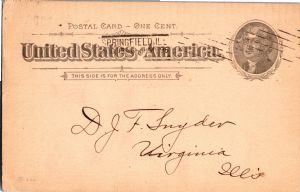 POSTAL CARD – ONE CENT.
SPRINGFIELD, ILL
United States of America.
THIS SIDE IS FOR THE ADDRESS ONLY.
D. J. F. Snyder
Virginia
Ills